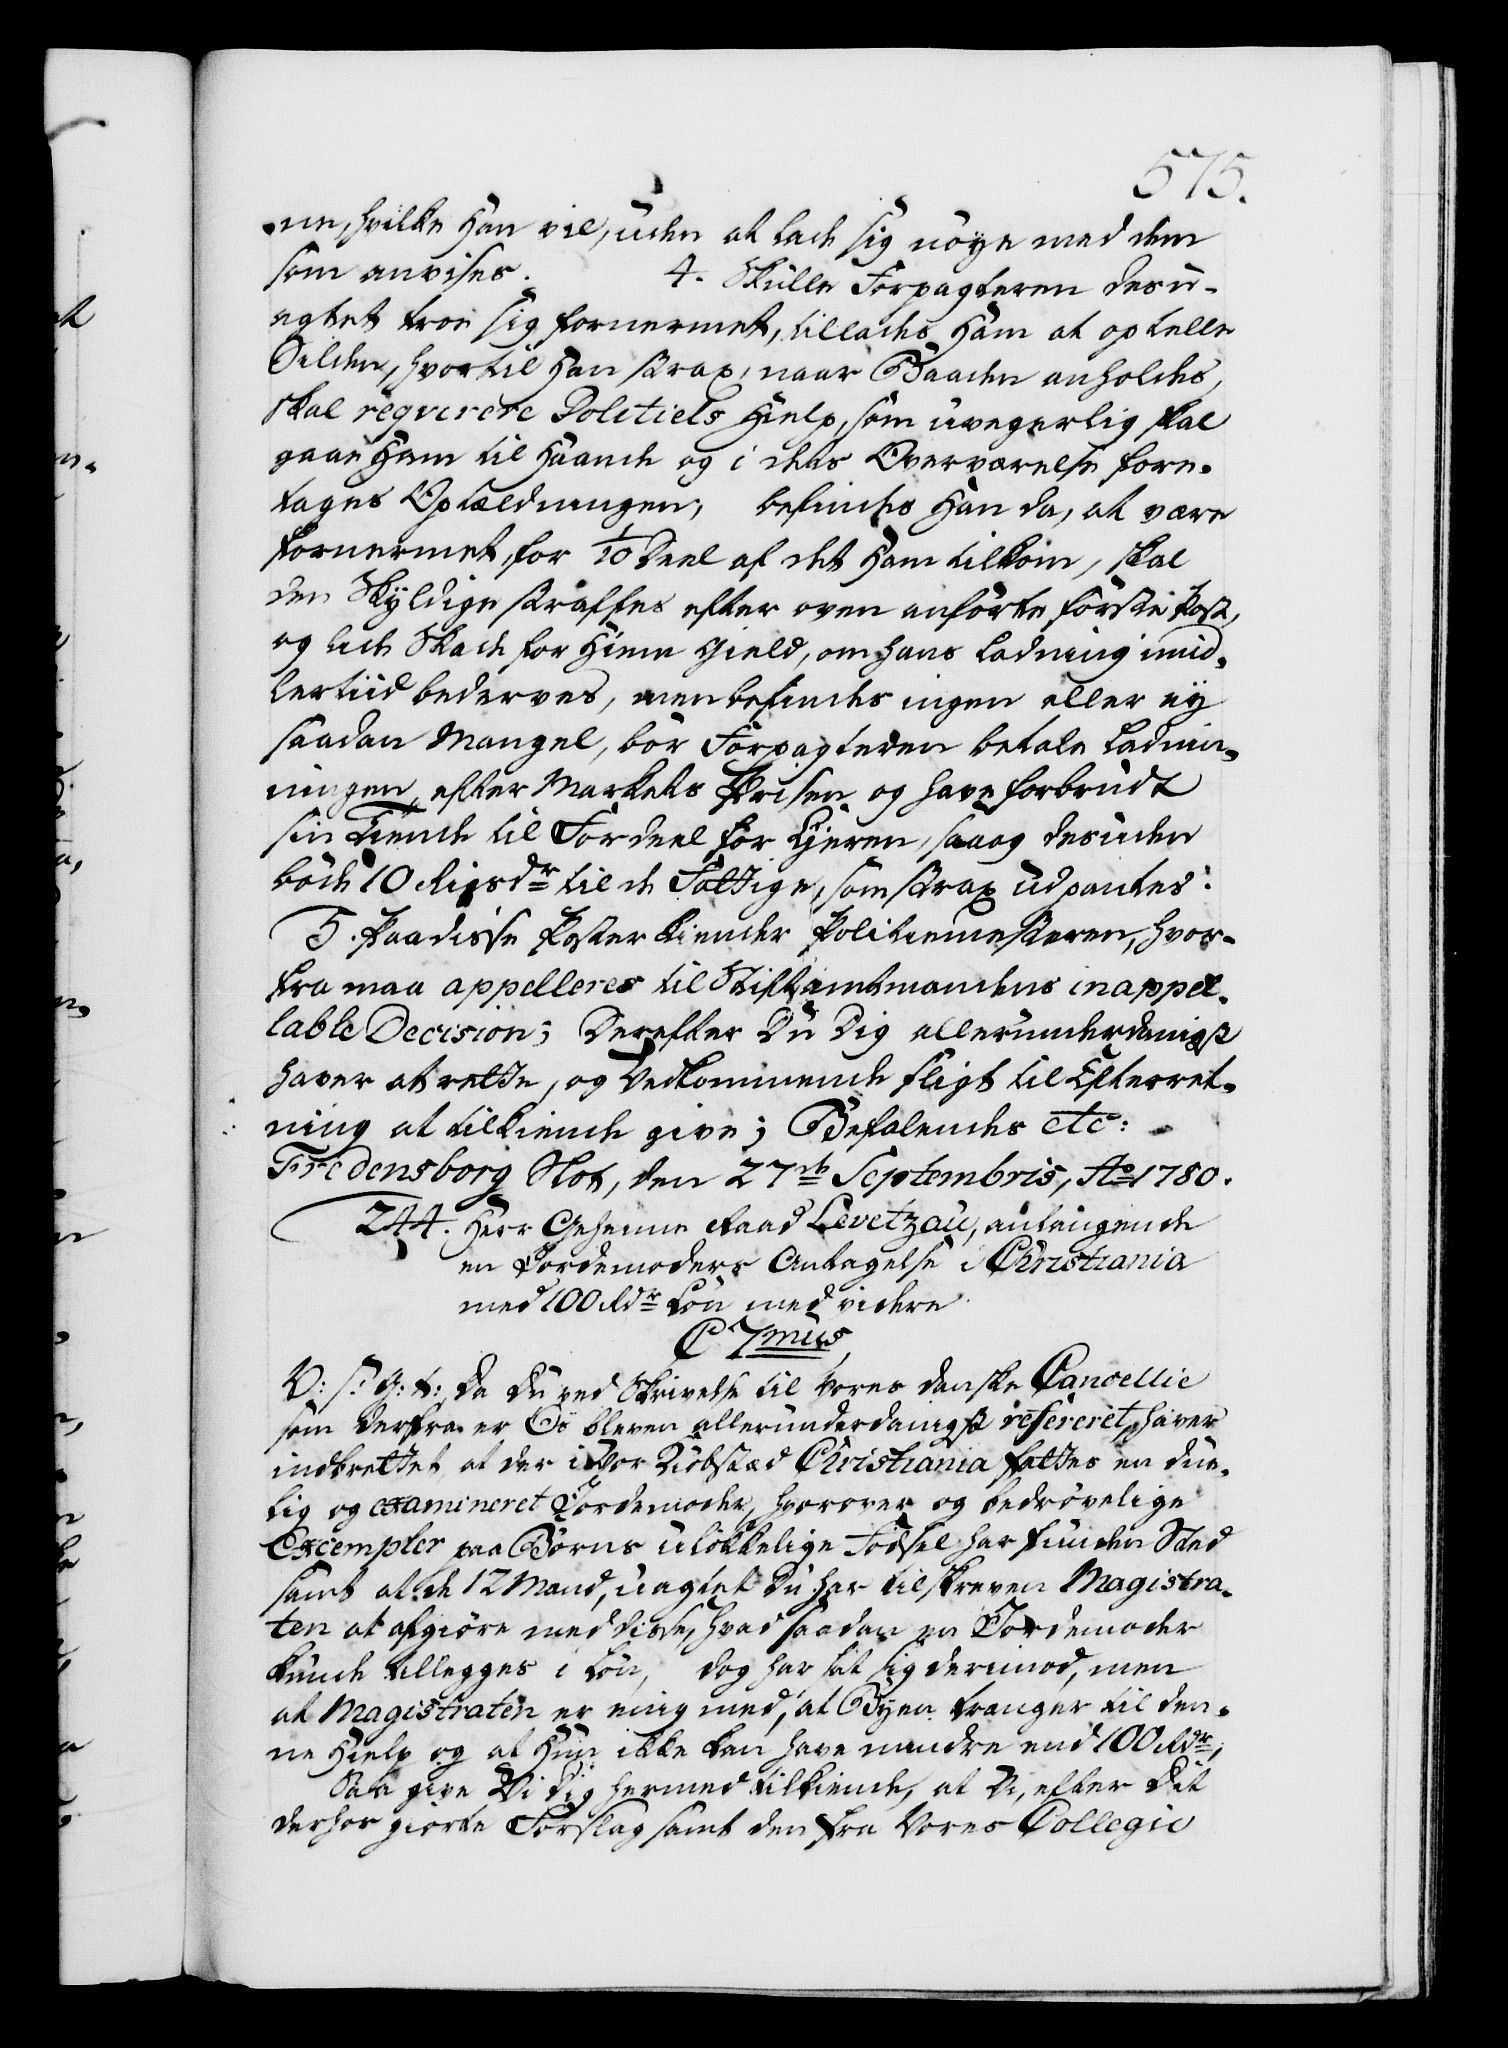 575.
ne, hvilke Han vil, uden at lade sig nöye med dem
som anvises. 4. Skulle Forpagteren desu-
agtet troe sig fornermet, tillades Ham at optelle
Silden, hvortil Han strax, naar Baaden anholdes,
skal reqvirere Politiets Hielp, som uvegerlig skal
gaae Ham til Haande og i dets Overværelse fore-
tages Optældningen, befindes Han da, at være
fornermet for 1/10 Deel af det Ham tilkom, skal
den Skyldige straffes efter oven anförte förste Post,
og lide Skade for Hiem Gield, om hans Ladning imid-
lertiid bederves, men befindes ingen eller ey
saadan Mangel, bör Forpagteren betale Ladnin-
ningen, efter Markets Prisen og have forbrudt
sin Tiende til Fordeel for Eyeren, saa og desuden
böde 10 Rigsdr til de Fattige, som strax udpantes:
5. Paa disse Poster kiender Politiemesteren, hvor-
fra maa appelleres til Stiftamtmandens inappel-
lable Decision; Derefter Du Dig allerunderdanigst
haver at rette, og Vedkommende sligt til Efterret-
ning at tilkiende give; Befalendes etc:
Fredensborg Slot, den 27de Septembris, Ao 1780.
244. Herr Geheime Raad Levetzau, anlangende
en Jordemoders Antagelse i Christiania
med 100 Rdr Lön med videre
C 7mus
V: S: G: t: Da Du ved Skrivelse til Vores danske Cancellie
som derfra er Os bleven allerunderdanigst refereret, haver
indberettet, at der i Vor Kiöbstæd Christiania fattes en due-
lig og examineret Jordemoder, hvorover og bedrövelige
Exempler paa Börns ulökkelige Födsel har funden Sted
samt at de 12 Mand, uagtet Du har tilskreven Magistra-
ten at afgiöre med disse, hvad saadan en Jordemoder
kunde tillegges i Lön, dog har sat sig derimod, men
at Magistraten er enig med, at Byen trænger til den-
ne Hielp og at Hun ikke kan have mindre end 100 Rdr;
Saa give Vi Dig hermed tilkiende, at Vi, efter Dit
derhos giorte Forslag samt den fra Vores Collegie